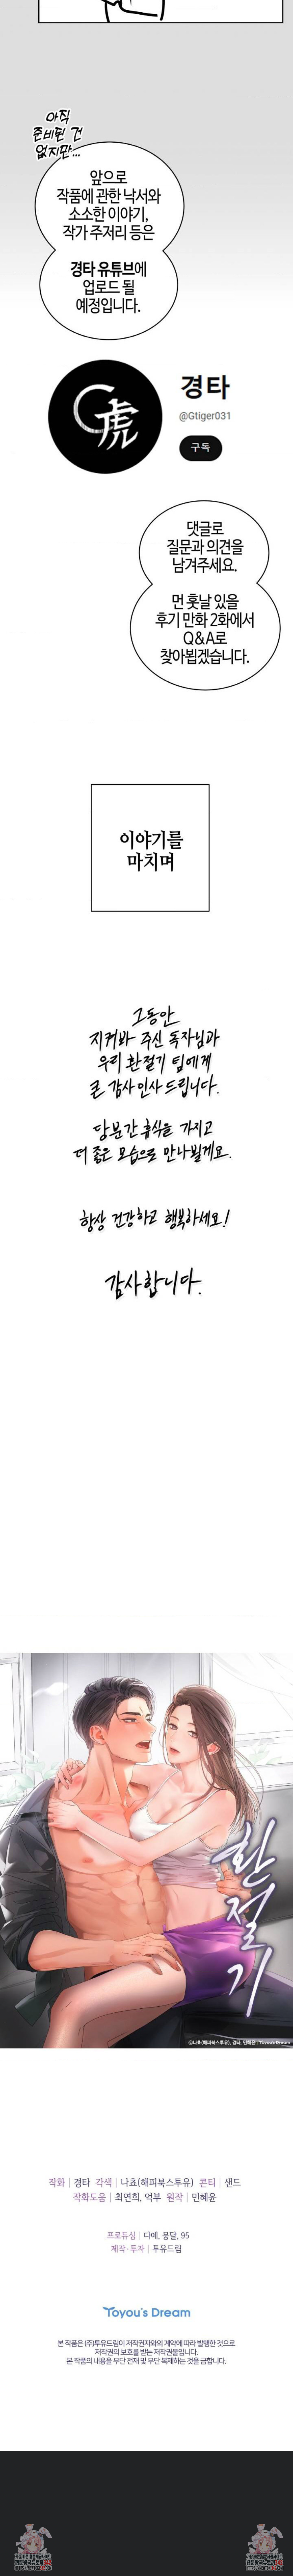 아직
준비된 건
없지만...
앞으로
작품에 관한 낙서와
소소한 이야기,
작가 주저리 등은
경타 유튜브에
업로드 될
예정입니다.
虎
경타
@Gtiger031
구독
댓글로
질문과 의견을
남겨주세요.
먼 훗날 있을
후기 만화 2화에서
Q&A로
찾아뵙겠습니다.
이야기를
마치며
그동안
지켜봐 주신 독자님과
우리 환절기 팀에게
큰 감사인사 드립니다.
당분간 휴식을 가지고
더 좋은 모습으로 만나뵐게요.
항상 건강하고 행복하세요!
감사합니다.
환절기
©나쵸(해피북스투유), 경타, 민혜윤 / Toyou's Dream
작화 | 경타 각색 | 나쵸(해피북스투유) 콘티 | 샌드
작화도움 | 최연희, 억부 원작 | 민혜윤
프로듀싱 | 다예, 뭉달, 95
제작·투자 | 투유드림
Toyou's Dream
본 작품은 (주)투유드림이 저작권자와의 계약에 따라 발행한 것으로
저작권의 보호를 받는 저작권물입니다.
본 작품의 내용을 무단 전재 및 무단 복제하는 것을 금합니다.